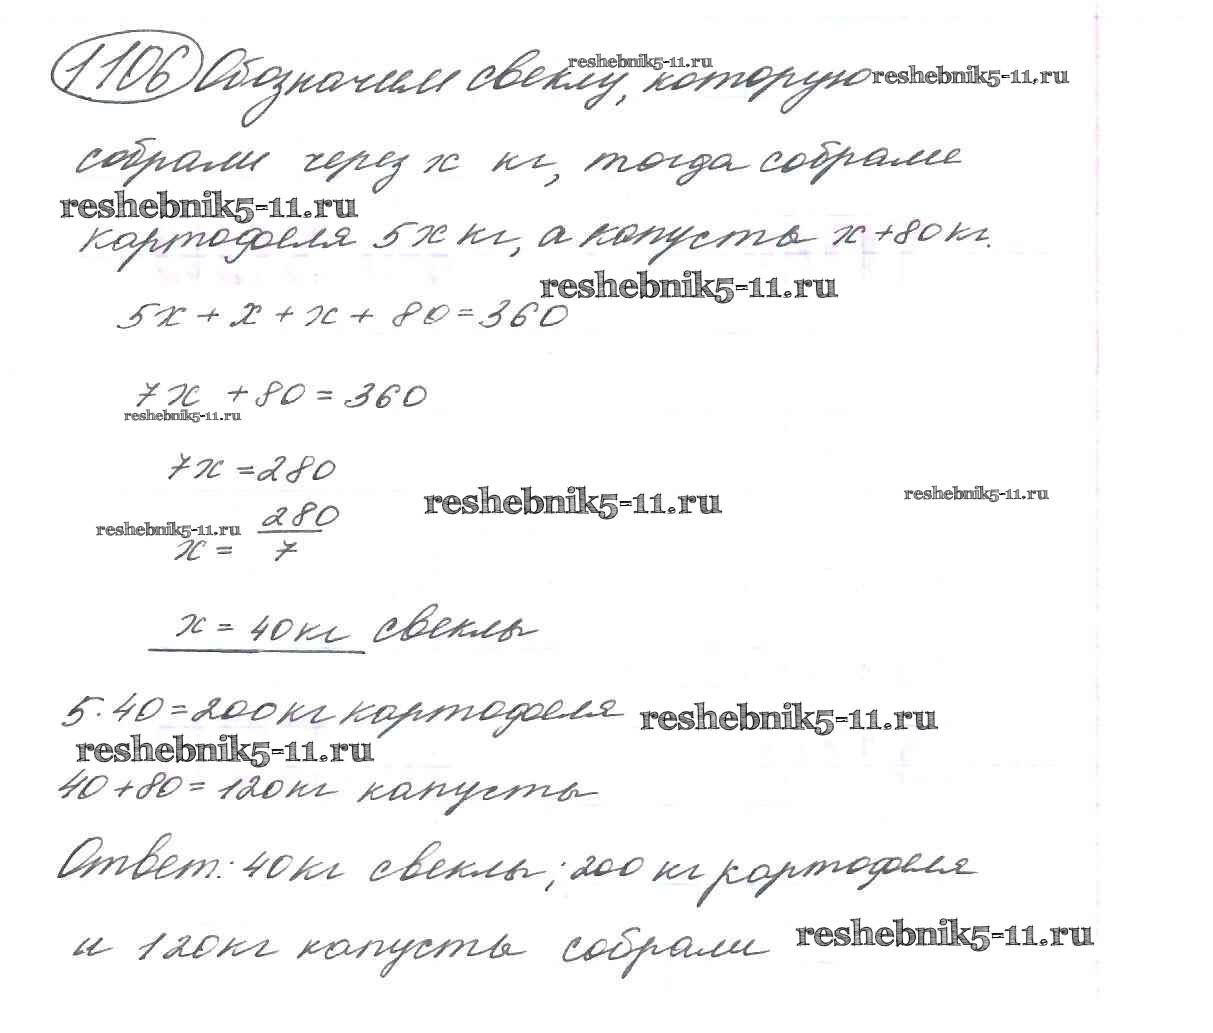 1106 Обозначим свеклу, которую
reshebnik5-11.ru
reshebnik5-11.ru
собрали через x кг, тогда собрали
reshebnik5-11.ru
картофеля 5x кг, а капусты x+80кг.
reshebnik5-11.ru
5x + x + x + 80 = 360
7x + 80 = 360
reshebnik5-11.ru
7x = 280
reshebnik5-11.ru
reshebnik5-11.ru
reshebnik5-11.ru
x = 280/7
x = 40кг свеклы
5·40=200кг картофеля
reshebnik5-11.ru
reshebnik5-11.ru
40+80=120кг капусты
Ответ: 40кг свеклы; 200 кг картофеля
и 120кг капусты собрали
reshebnik5-11.ru